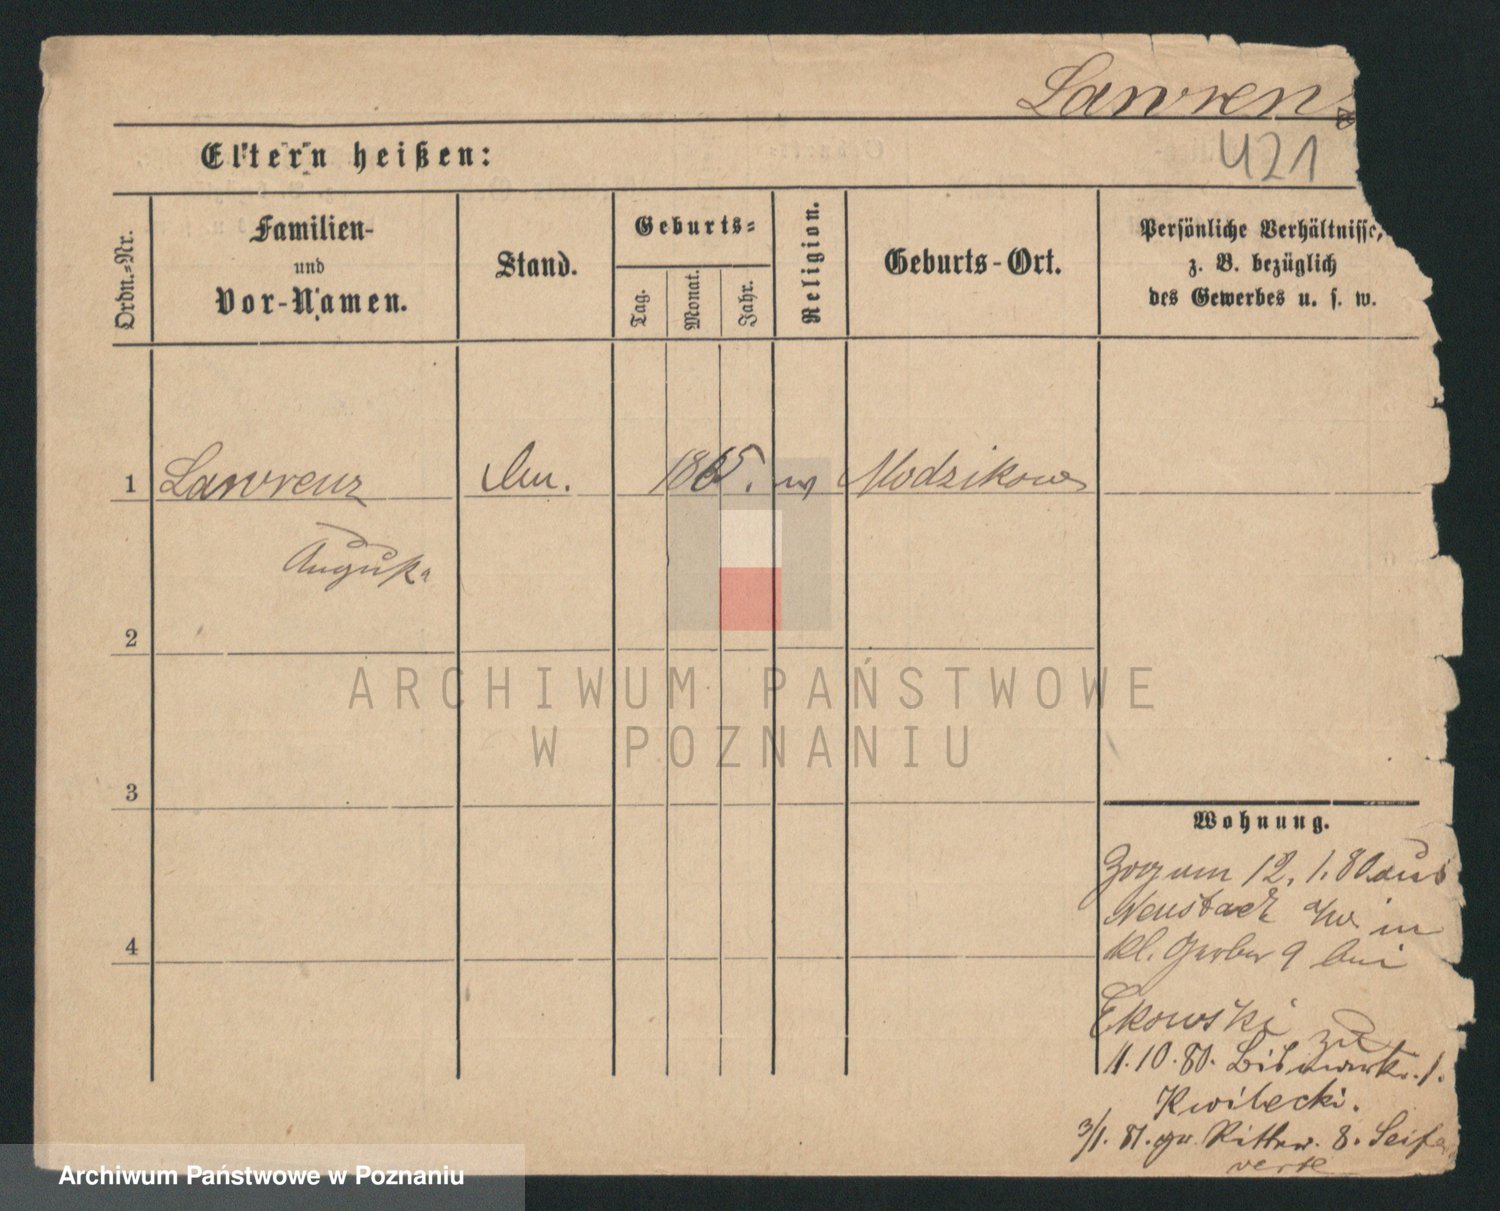 Lawrenz
421
Eltern heißen:
Ordn.-Nr.
Familien-
und
Vor-Namen.
Stand.
Geburts-
Tag.
Monat.
Jahr.
Religion.
Geburts-Ort.
Persönliche Verhältnisse,
z. B. bezüglich
des Gewerbes u. s. w.
1 Lawrenz 1865. Modzikowo
Auguste
2
ARCHIWUM PAŃSTWOWE
W POZNANIU
3
Wohnung.
Zog am 12. 1. 80 aus
Neustadt a/W. in
kl. Gerber 9 bei
Ekowski zu
1.10.80. Bismarckstr. 1.
Kwilecki.
3/1. 81. Ritter. 8. Seif
verte
4
Archiwum Państwowe w Poznaniu